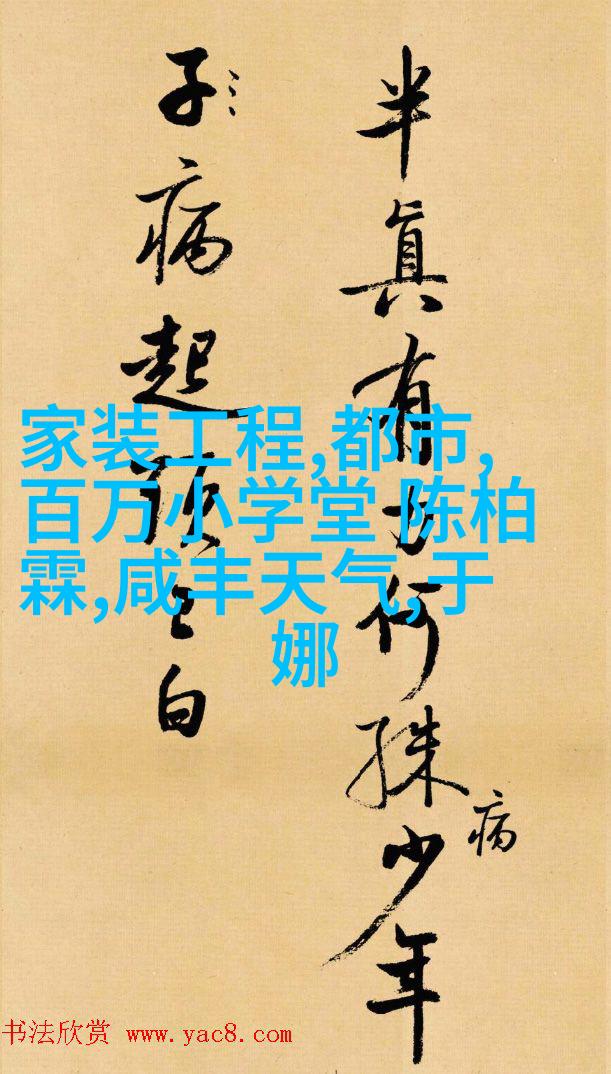 半真有力何殊少年
病
子病起頭已白
家装工程,都市,
百万小学堂 陈柏
霖,咸丰天气,于
娜
书法欣赏 www.yac8.com